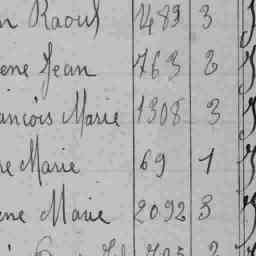 n Raoul 1489 3
ène Jean 763 2
ançois Marie 1308 3
re Marie 69 1
ène Marie 2092 3